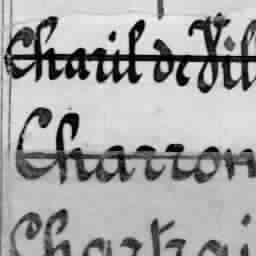 Charil de Vil
Charron
Chartrai